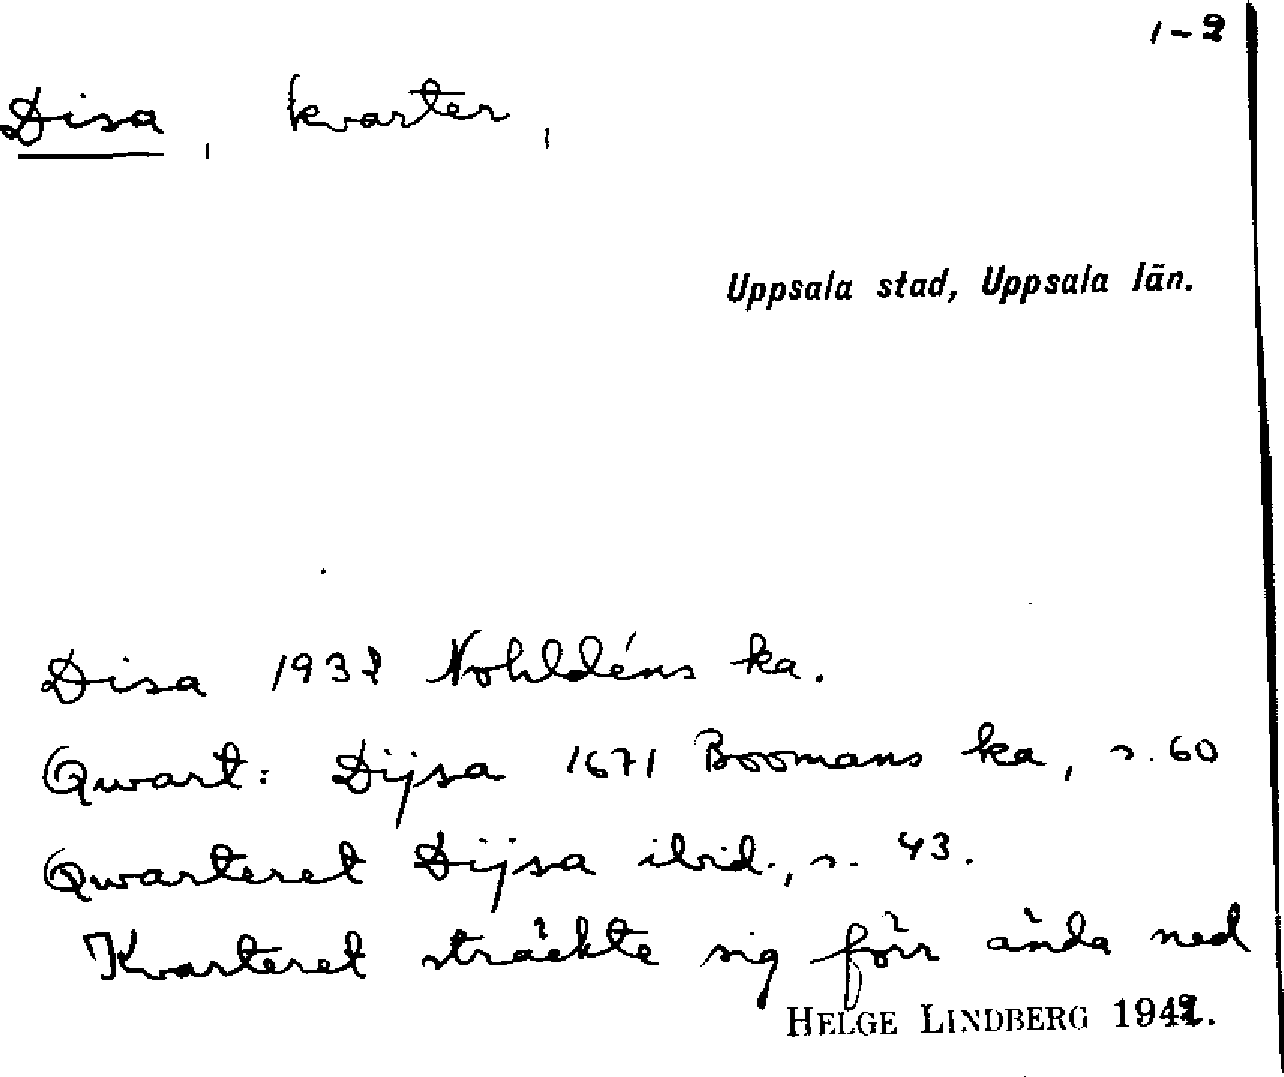 1-2
Disa, kvarter,
Uppsala stad, Uppsala län.
Disa 1932 Nohldéns ka.
Qwart: Dijsa 1671 Boomans ka, s. 60
Qwarteret Dijsa ibid., s. 43.
Kvarteret sträckte sig förr ända ned
HELGE LINDBERG 1942.